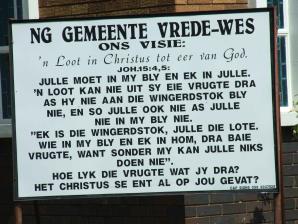 NG GEMEENTE VREDE-WES
ONS VISIE:
'n Loot in Christus tot eer van God.
JOH.15:4,5:
JULLE MOET IN MY BLY EN EK IN JULLE.
'N LOOT KAN NIE UIT SY EIE VRUGTE DRA
AS HY NIE AAN DIE WINGERDSTOK BLY
NIE, EN SO JULLE OOK NIE AS JULLE
NIE IN MY BLY NIE.
"EK IS DIE WINGERDSTOK, JULLE DIE LOTE.
WIE IN MY BLY EN EK IN HOM, DRA BAIE
VRUGTE, WANT SONDER MY KAN JULLE NIKS
DOEN NIE".
HOE LYK DIE VRUGTE WAT JY DRA?
HET CHRISTUS SE ENT AL OP JOU GEVAT?